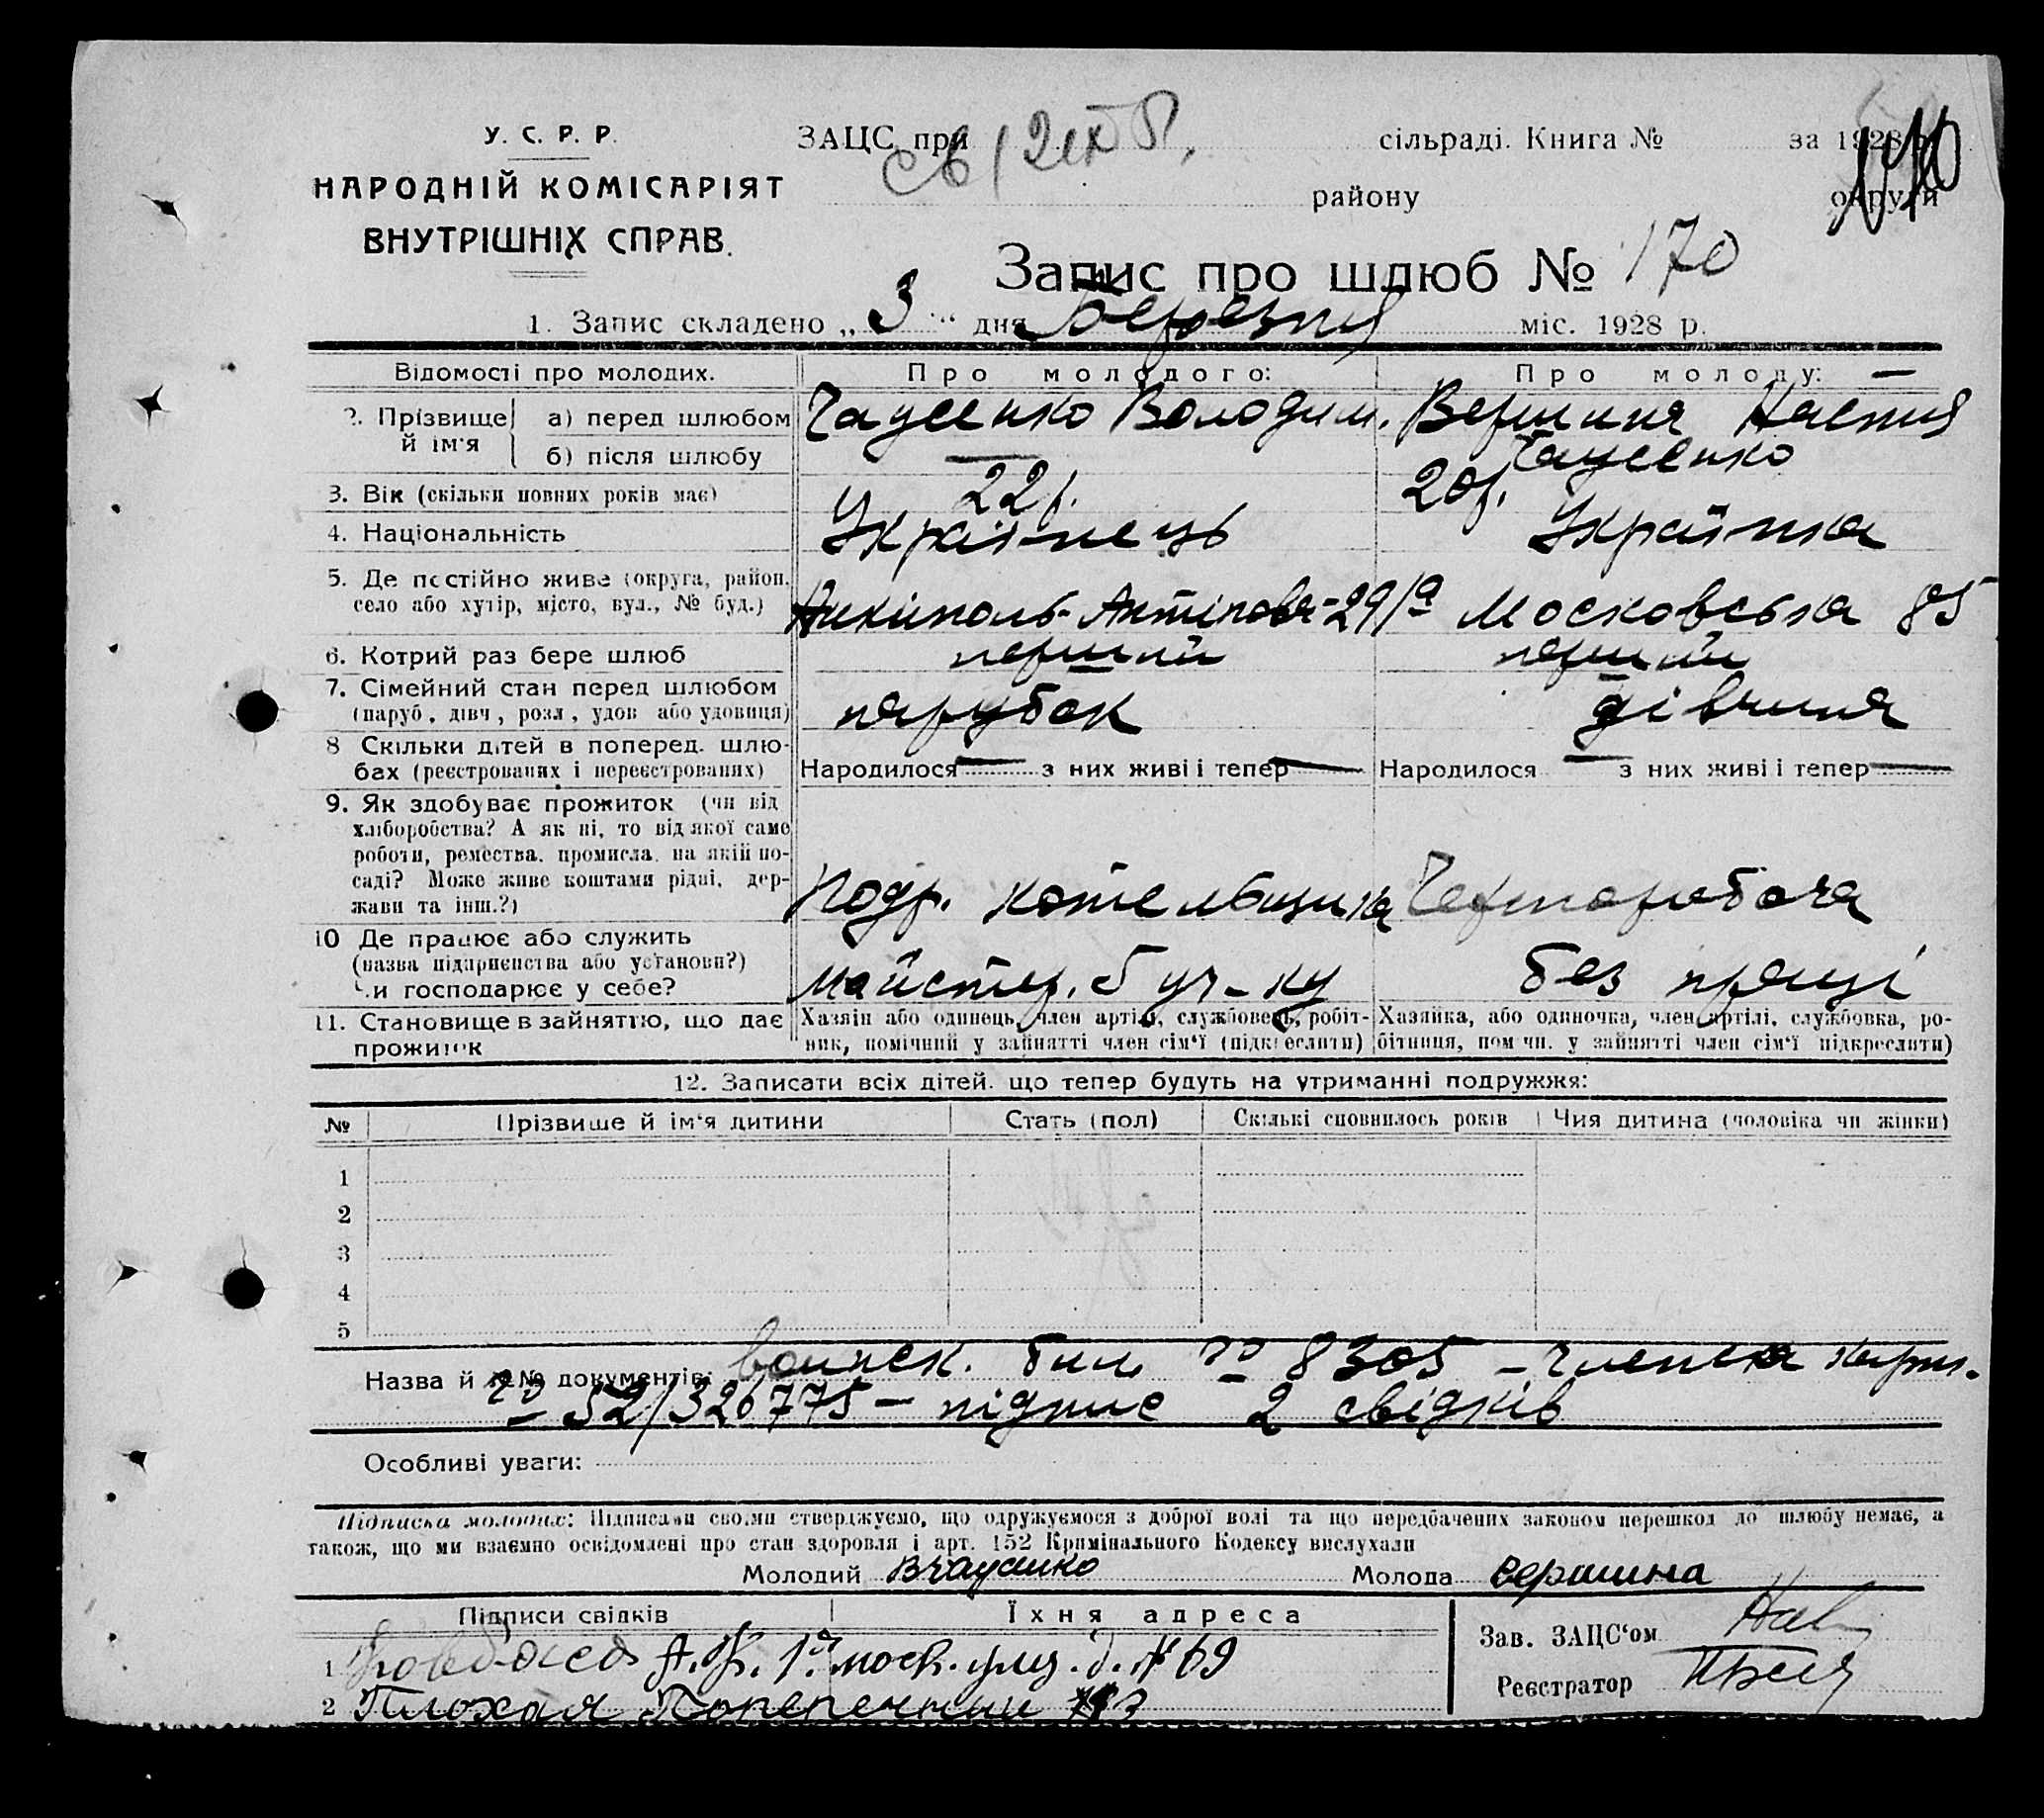 У. С. Р. Р.
НАРОДНІЙ КОМІСАРІЯТ
ВНУТРІШНІХ СПРАВ.
ЗАЦС при сільраді. Книга № за 1928 р.
району округи
Запис про шлюб № 170
1. Запис складено „ 3 “ дня Березня міс. 1928 р.
Відомості про молодих. Про молодого: Про молоду: —
2. Прізвище й ім'я
а) перед шлюбом Чаусенко Володим. Вершина Настя
б) після шлюбу — Чаусенко
3. Вік (скільки повних років має) 22р. 20р.
4. Національність Українець Українка
5. Де постійно живе (округа, район, село або хутір, місто, вул., № буд.) Антіпова-29/а Московська 85
6. Котрий раз бере шлюб перший перший
7. Сімейний стан перед шлюбом парубок дівчина
(паруб., дівч., розл., удов. або удовиця)
8 Скільки дітей в поперед. шлюбах (реєстрованих і нереєстрованих) Народилося — з них живі і тепер — Народилося — з них живі і тепер —
9. Як здобуває прожиток (чи від
хліборобства? А як ні, то від якої саме
роботи, ремества, промисла, на якій по-
саді? Може живе коштами рідні, дер-
жави та інш.?) Подр. котельщика Чорноробоча
10 Де працює або служить
(назва підприємства або установи?)
Чи господарює у себе? майстер. без праці
11. Становище в зайняттю, що дає
прожиток
Хазяїн або одинець, член артілі, службовець, робіт-
ник, помічний у зайнятті член сім'ї (підкреслити)
Хазяйка, або одиночка, член артілі, службовка, ро-
бітниця, пом чн. у зайнятті член сім'ї підкреслити)
12. Записати всіх дітей. що тепер будуть на утриманні подружжя:
№ Прізвище й ім'я дитини Стать (пол) Скількі сповнилось років Чия дитина (чоловіка чи жінки)
1
2
3
4
5
Назва й №№ документів: воинск. бил. № 8305 — Членська карт.
№ 52/326775 — підпис 2 свідків
Особливі уваги:
Підписка молодих: Підписами своїми стверджуємо, що одружуємося з доброї волі та що передбачених законом перешкод до шлюбу немає, а
також, що ми взаємно освідомлені про стан здоровля і арт. 152 Кримінального Кодексу вислухали
Молодий ВЧаусенко Молода Вершина
Підписи свідків Їхня адреса
Зав. ЗАЦС'ом
1 А.Ф. 1я моск. улиц. д. № 69
Реєстратор
2 Плохая